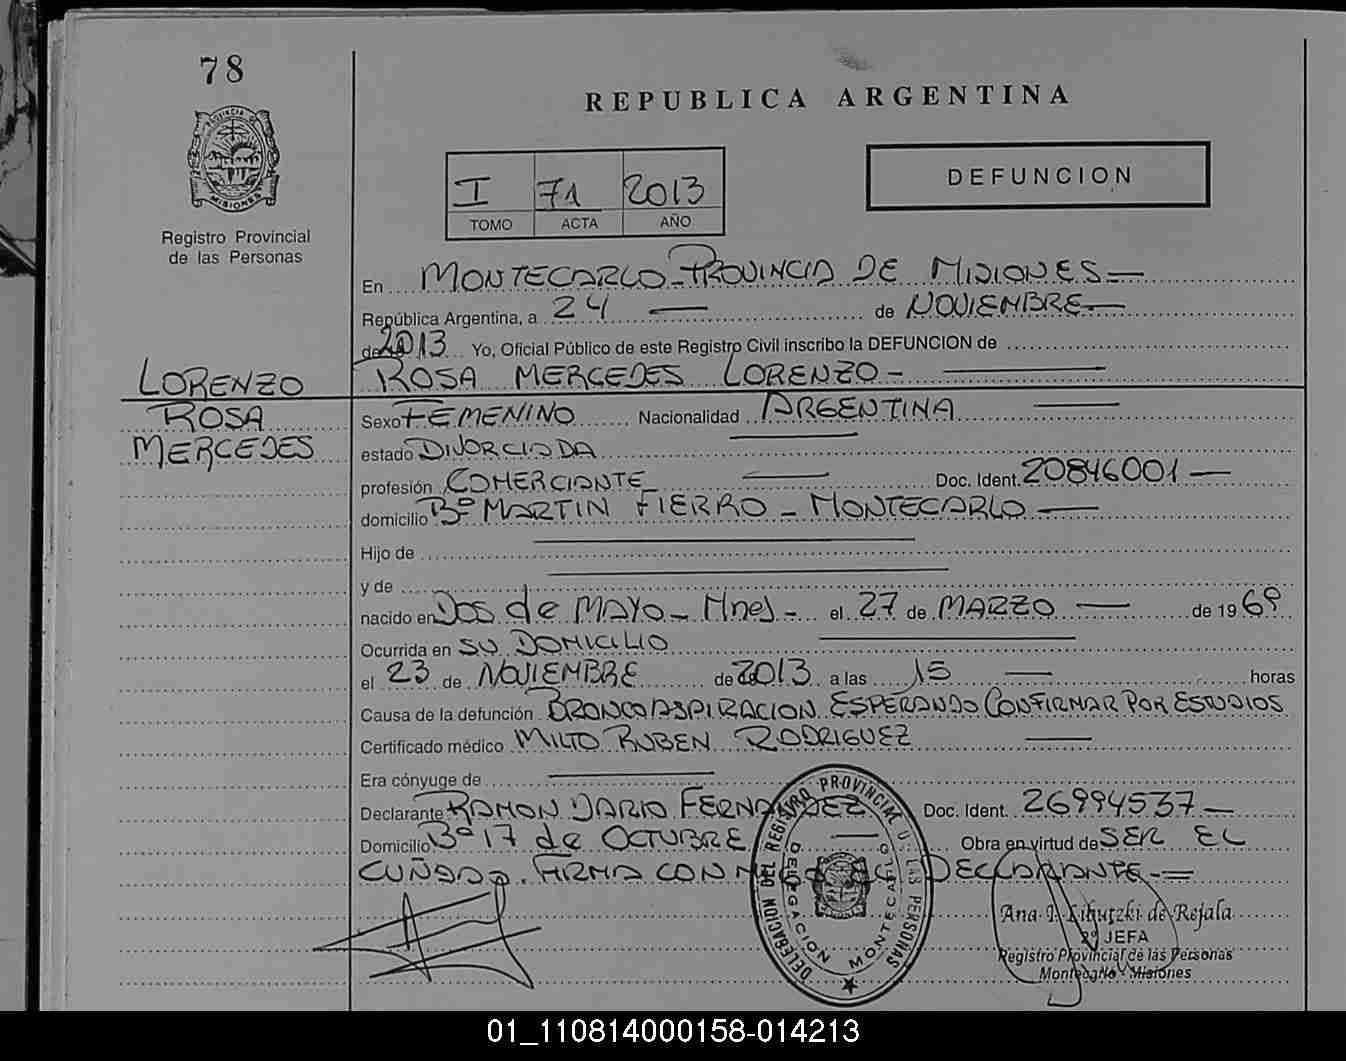 78
REPUBLICA ARGENTINA
PROVINCIA DE
MISIONES
I 71 2013
TOMO ACTA AÑO
DEFUNCION
Registro Provincial
de las Personas
En MONTECARLO - PROVINCIA DE MISIONES —
República Argentina, a 24 — de NOVIEMBRE —
de 2013 Yo, Oficial Público de este Registro Civil inscribo la DEFUNCION de
LORENZO
ROSA
MERCEDES
ROSA MERCEDES LORENZO -
Sexo FEMENINO Nacionalidad ARGENTINA
estado DIVORCIADA
profesión COMERCIANTE Doc. Ident. 20846001 —
domicilio Bº MARTIN FIERRO - MONTECARLO —
Hijo de
y de
nacido en DOS de MAYO - Mnes - el 27 de MARZO — de 1969
Ocurrida en SU DOMICILIO
el 23 de NOVIEMBRE de 2013 a las 15 — horas
Causa de la defunción BRONCOASPIRACION ESPERANDO CONFIRMAR POR ESTUDIOS
Certificado médico MILTO RUBEN RODRIGUEZ —
Era cónyuge de
Declarante RAMON DARIO FERNANDEZ Doc. Ident. 26994537 —
Domicilio Bº 17 de OCTUBRE — Obra en virtud de SER EL
CUÑADO. FIRMA CONMIGO EL DECLARANTE - =
DELEGACION DEL REGISTRO PROVINCIAL DE LAS PERSONAS
DELEGACION MONTECARLO
Ana I. Lihutzki de Rejala
2º JEFA
Registro Provincial de las Personas
Montecarlo - Misiones
01_110814000158-014213